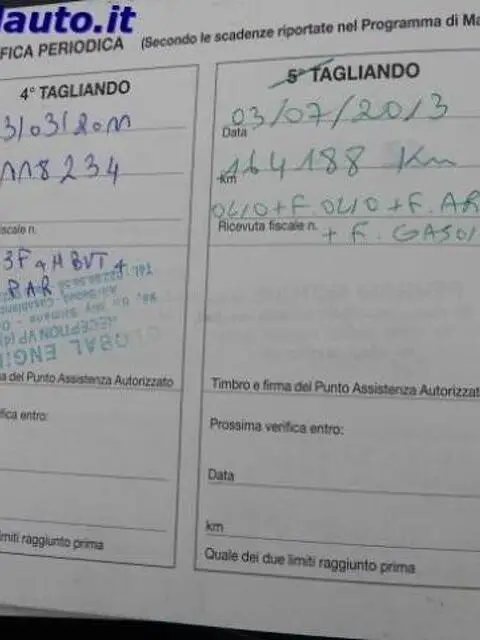 lauto.it
FICA PERIODICA (Secondo le scadenze riportate nel Programma di Ma
4° TAGLIANDO
3/03/2011
118234
iscale n.
3F + H BVT +
PAR
GLOBAL ENGI
RECEPTION VP
a del Punto Assistenza Autorizzato
ifica entro:
imiti raggiunto prima
5° TAGLIANDO
03/07/2013
Data
164188 Km
km
OLIO + F. OLIO + F. AR
Ricevuta fiscale n. + F. GASOI
Timbro e firma del Punto Assistenza Autorizzat
Prossima verifica entro:
Data
km
Quale dei due limiti raggiunto prima